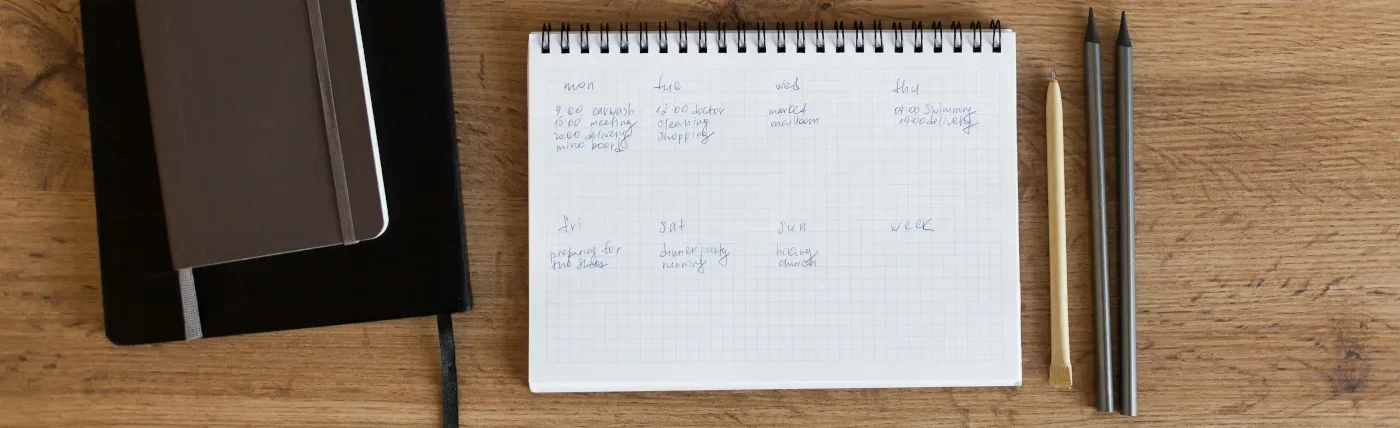 mon
9:00 carwash
15:00 meeting
20:00 delivery
miro board
tue
12:00 doctor
cleaning
shopping
wed
market
mailroom
thu
09:00 swimming
19:00 delivery
fri
preparing for
the
sat
dinner party
running
sun
hiking
church
week